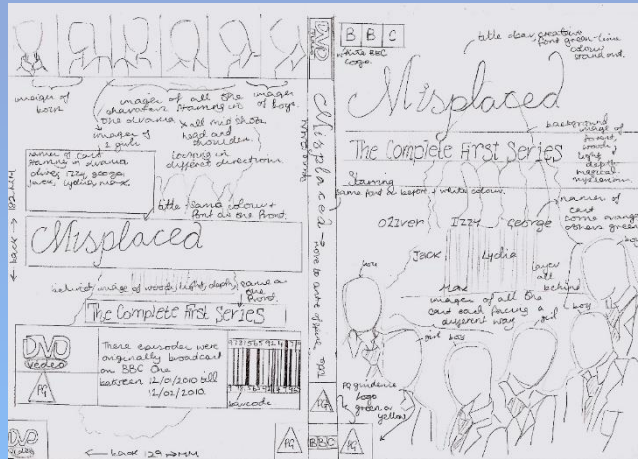 images of
born
images of all the
characters starring in
the drama
images of
2 girls
images
of boys.
all mid shots
head and
shoulder.
looking in
different directions
names of cast
starring in drama
oliver, izzy, george
title, same colour +
font as the front.
Misplaced
behind image of woods, light, depth
same as
the front.
The Complete First Series
DVD
video
PG
These episodes were
originally broadcast
on BBC One
between 12/01/2010 till
12/02/2010.
barcode
DVD
← back 129 → MM
← back 192MM →
PG
DVD
Misplaced
move to centre of spine
PG
BBC
BBC
white BBC
logo.
title clear, creative
font green-lime
colour
stand out.
Misplaced
background
image of
forest,
woods,
light
depth
magical
mysterious
The Complete First Series
Starring
same font as before, white colour.
names of
cast
some orange
others green
Oliver Izzy George
Jack Lydia
Max
layer
all
behind
images of all the
cast and facing a
different way
girl
boy
girl
boy
boy
PG guidance
logo
green or
yellow
PG